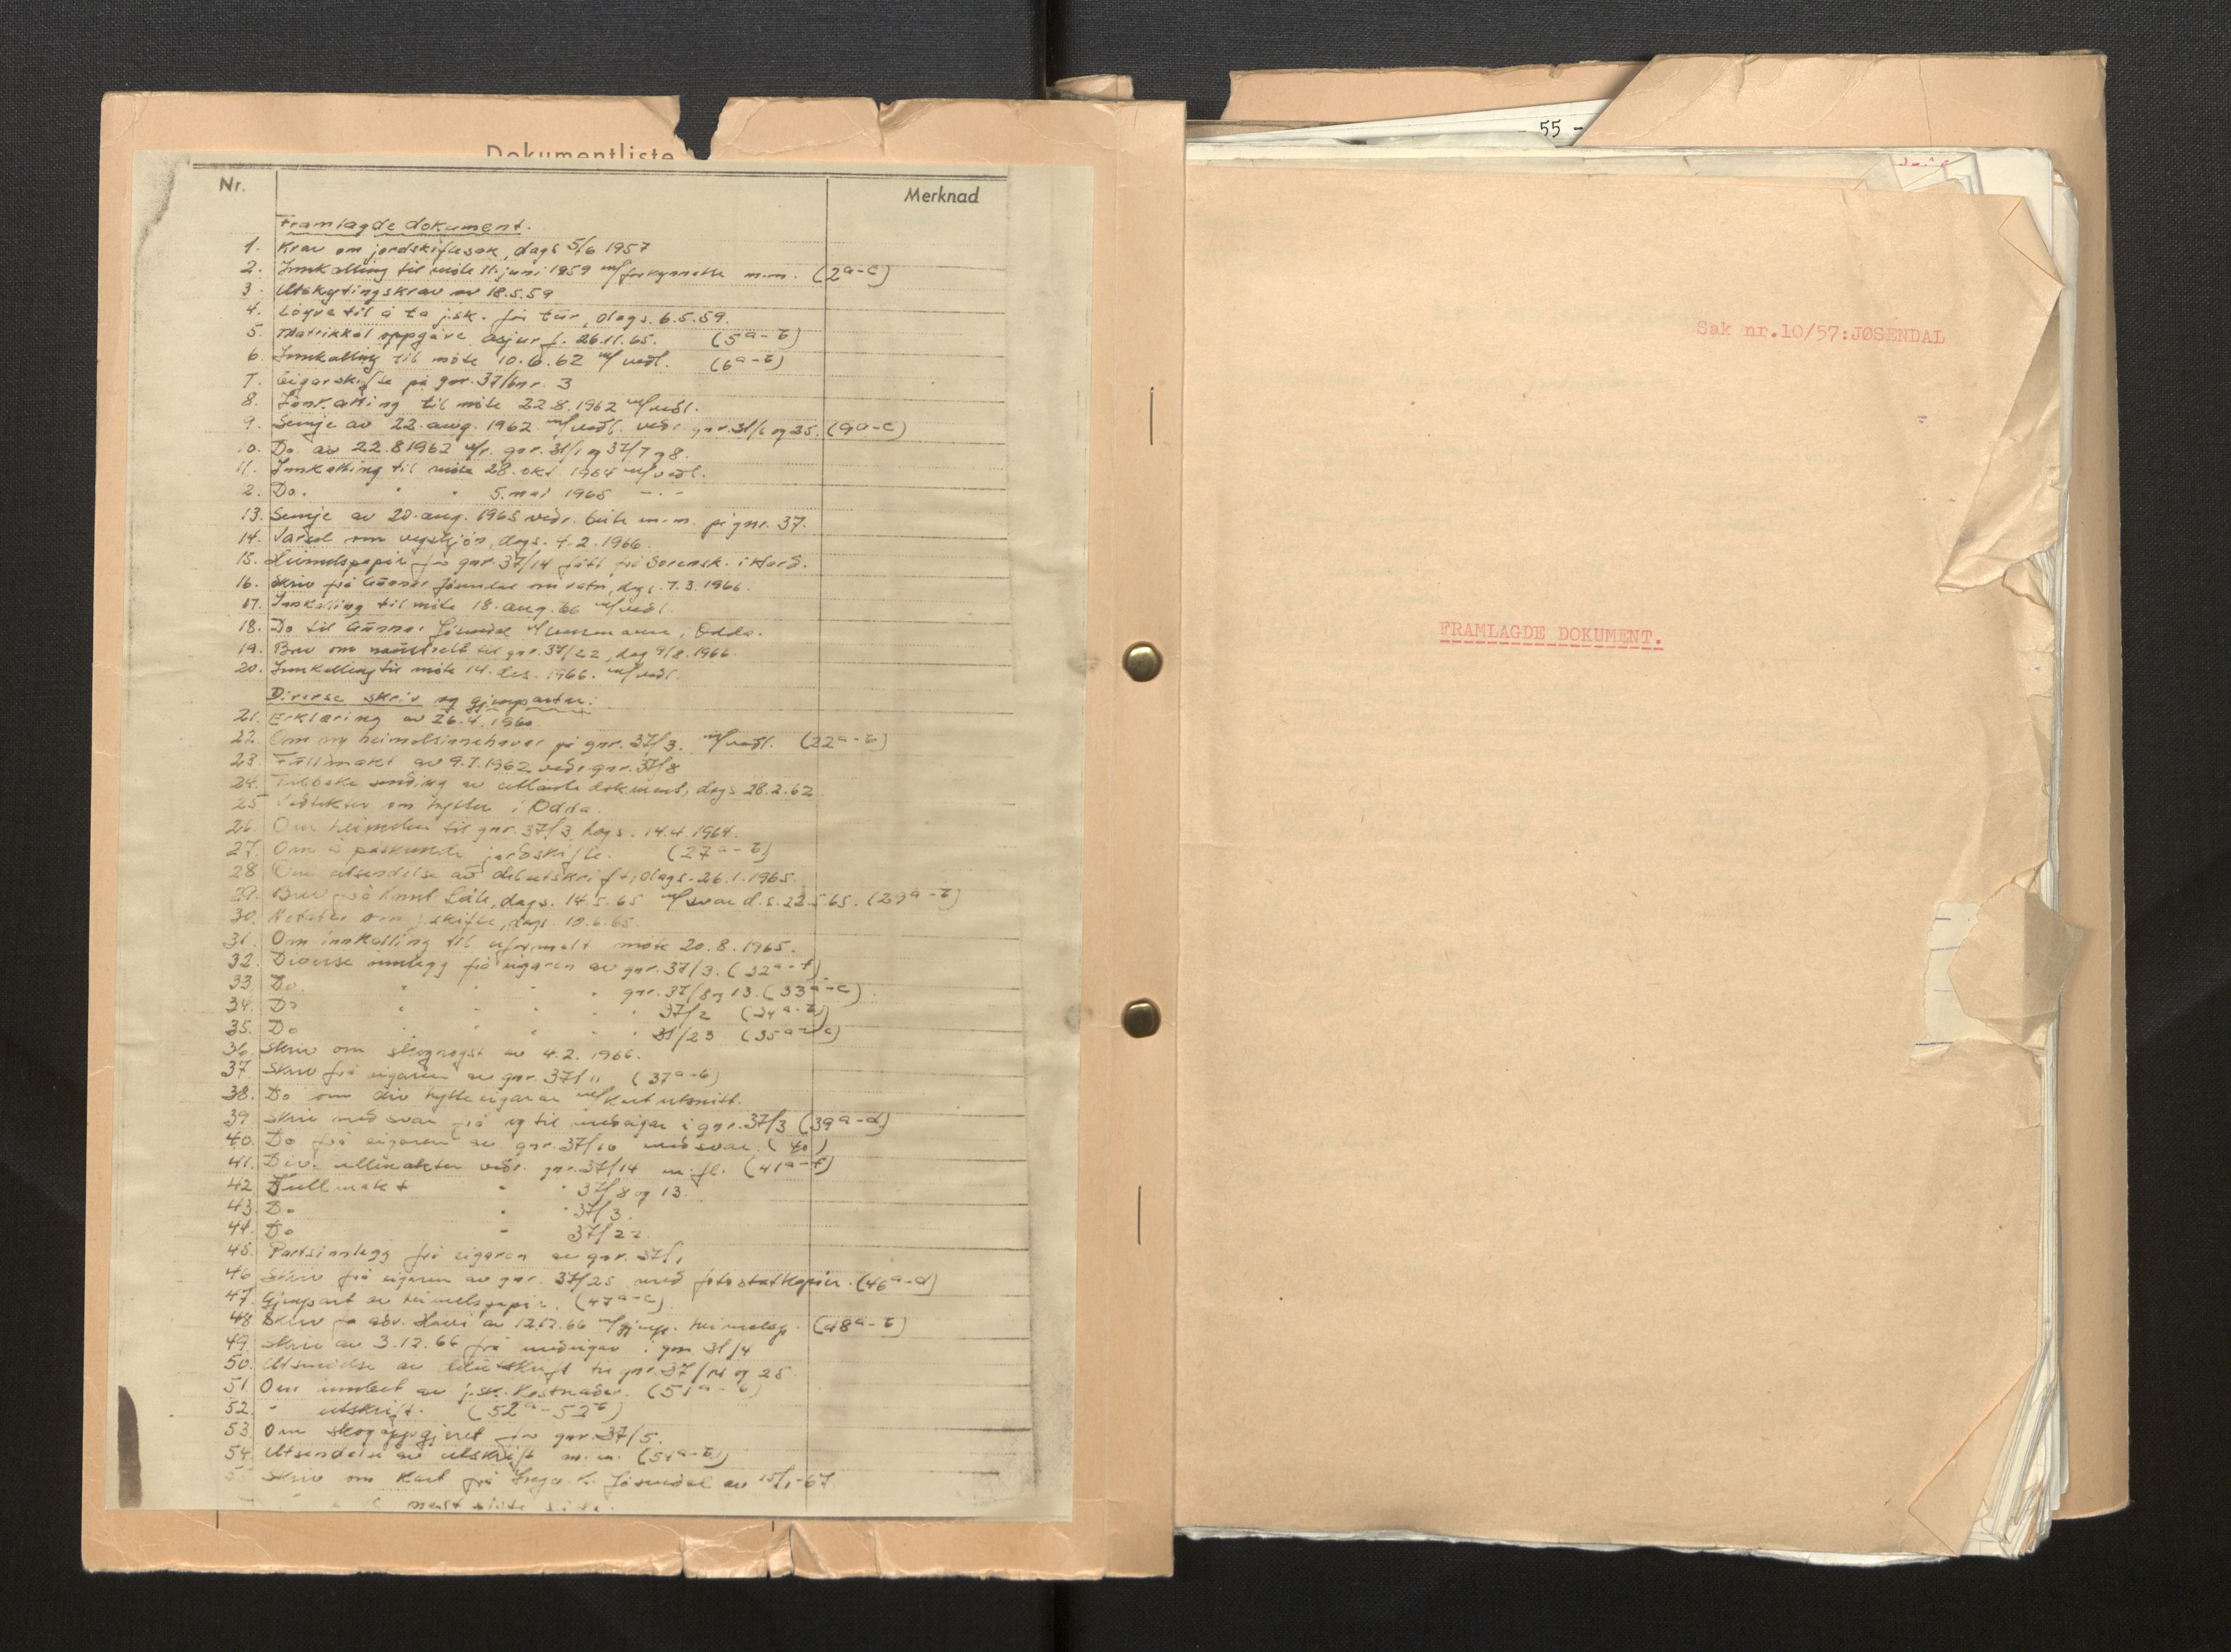 Dokumentliste
Nr.
Merknad
Framlagde dokument.
1. Krav om jordskiftesak, dags 5/6 1957
2. Innkalling til møte 11. juni 1959 m/forkynnelse m.m. (2a-c)
3. Utskytingskrav av 18.5.59
4. Løyve til å ta j.sk. för tur, dags. 6.5.59.
5. Matrikkel oppgåve, 26.11.65. (5a-b)
6. Innkalling til møte 10.6.62 m/vedl. (6a-b)
7. Eigarskifte på gnr. 37/bnr. 3
8. Innkalling til møte 22.8.1962 m/vedl.
9. Semje av 22. aug. 1962 m/vedl. vedr. gnr. (9a-c)
10. Do. av 22.8 1962 og 37/7 og 8.
11. Innkalling til møte 28. okt. 1964 m/vedl.
2. Do. " " 5. mai 1965 - " -
13. Semje av 20. aug. 1965 vedr. m.m. på gnr. 37.
14. Varsel om dags. 4.2.1966.
15. Heimelspapir for gnr. 37/14 frå Sorensk. i Hard.
16. Skriv frå Gunnar Jösendal om dags. 7.3.1966.
17. Innkalling til møte 18. aug. 66 m/vedl.
18. Do til Gunnar Jösendal i Odda.
19. Brev om til gnr. 37/22, dag 9/8. 1966.
20. Innkalling til møte 14. des. 1966. m/vedl.
Diverse skriv og gjenparter:
21. Erklæring av 26.4.1960
22. Om ny heimelsinnehavar på gnr. 37/3. m/vedl. (22a-b)
23. Fullmakt av 9.7.1962 vedr. gnr. 37/8
24. Tilbakesending av utlånte dokument, dags 28.2.62
25 Vedtekter om hytter i Odda.
26. Om heimelen til gnr. 37/3, dags. 14.4.1964.
27. Om å påskunde jordskifte. (27a-b)
28 Om utsendelse av delutskrift, dags. 26.1.1965.
29. Brev frå dags. 14.5.65 m/svar d.s. 22.5.65. (29a-b)
30. skifte, dags. 10.6.65.
31. Om innkalling til uformelt møte 20.8.1965.
32. Diverse innlegg frå eigaren av gnr. 37/3. (32a-f)
33. Do. " " " " gnr. 37/8 og 13. (33a-c).
34. Do " " " " 37/2 (34a-b)
35. Do " " " " /23 (35a-c)
36. Skriv om av 4.2.1966.
37. Skriv frå eigaren av gnr. 37/11 (37a-b)
38. Do om div hytteeigarar m/kartutsnitt.
39. Skriv med svar frå og til medeigar i gnr. 37/3 (39a-d)
40. Do frå eigaren av gnr. 37/10 med svar. (40)
41. Div. vedr. gnr. 37/14 m.fl. (41a-f)
42. Fullmakt " " 37/8 og 13.
43. Do " 37/3.
44. Do " 37/22.
45. Partsinnlegg frå eigaren av gnr. 37/1
46. Skriv frå eigaren av gnr. 37/25 med fotostatkopier. (46a-d)
47. Gjenpart av heimelspapir. (47a-c)
48 Skriv fra adv. av 12.12.66 m/gjenp. heimelsp. (48a-b)
49. Skriv av 3.12.66 frå medeigar i gnr
50. Utsendelse av delutskrift til gnr. 37/14 og 25
51. Om av j.sk. kostnader. (51a-b)
52. " utskrift. (52a-52b)
53. Om for gnr. 37/5.
54. Utsendelse av utskrift m.m. (54a-b)
5 Skriv om kart frå Inga K. Jösendal av 15/1-67.
nest siste side.
- 55 -
Sak nr.10/57:JØSENDAL
FRAMLAGDE DOKUMENT.